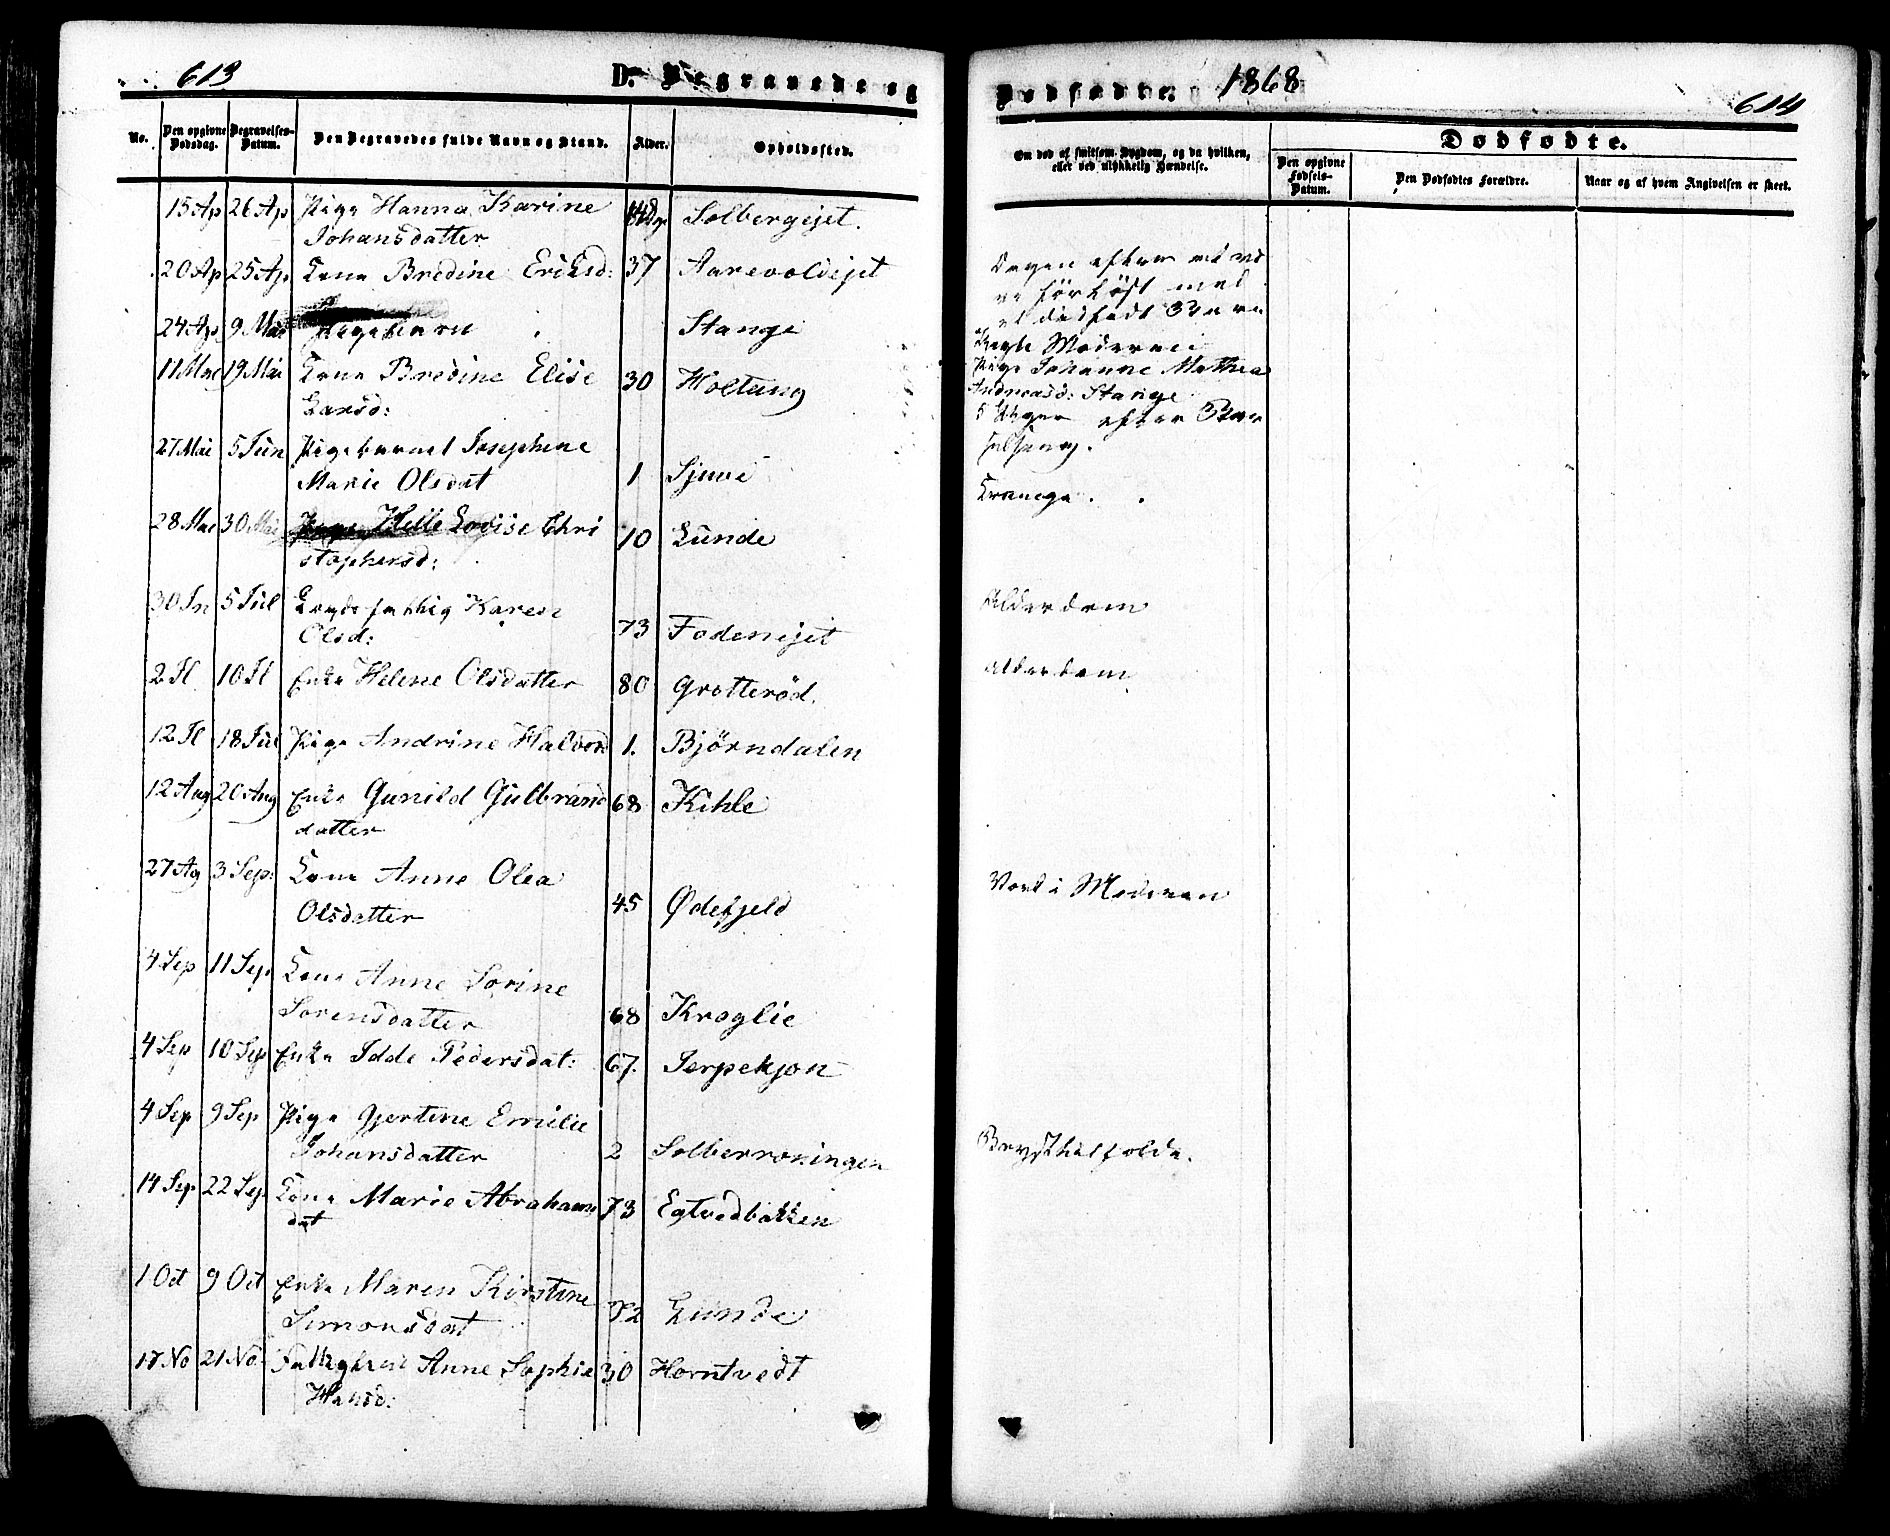 613
D. Begravede og
No.
Den opgivne Dødsdag.
Begravelses-Datum.
Den Begravedes fulde Navn og Stand.
Alder.
Opholdssted.
15 Ap 26 Ap Pige Hanna Karine Solbergejet.
Johansdatter
20 Ap 25 Ap Kone Bredine Eriksd: 37 Aarevoldejet
24 Ap 9 Mai Pigebarn Stange
11 Mai 19 Mai Kone Bredine Elise 30 Holtung
Larsd:
27 Mai 5 Jun Pigebarnet Josephine
Marie Olsdat 1 Sjuve
28 Mai 30 Mai Pige Helle Lovise Chri
stophersd: 10 Lunde
30 Jn 5 Jul Lægdsfattig Karen
Olsd: 73 Fodenejet
2 Jl 10 Jl Enke Helene Olsdatter 80 Grotterød.
12 Jl 18 Jul Pige Andrine Halvord 1. Bjørndalen
12 Aug 20 Aug Enke Gunild Gulbrand 68 Kihle
datter
27 Ag 3 Sep: Kone Anne Olea
Olsdatter 45 Ødefjeld
4 Sep 11 Sep Kone Anne Sorine
Sorensdatter 68 Kroglie
4 Sep 10 Sep Enke Idde Pedersdat: 67. Jerpekjøn
4 Sep 9 Sep Pige Gjertine Emilie
Johansdatter 2 Solberroningen
14 Sep 22 Sep Kone Marie Abraham 73 Egtvedbakken
dat
1 Oct 9 Oct Enke Maren Kirstine
Simonsdat 72 Lunde
17 No 21 No Fattigkone Anne Sophie 30 Horntvedt
Hansd:
Dødfødte.
1868
614
Om død af smitsom Sygdom, og da hvilken,
eller ved ulykkelig Hændelse.
Dødfødte.
Den opgivne Fødsels-Datum.
Den Dødfødtes Forældre.
Naar og af hvem Angivelsen er skeet.
Dagen efter at væ
re forløst med
et dødfødt Barn
Uegte Moderen
Pige Johanne Mathea
Andreasd: Stange
5 Uger efter Bar
selseng.
Krampe.
Alderdom
Alderdom
Vort i Moderen
Brysthasfolde.